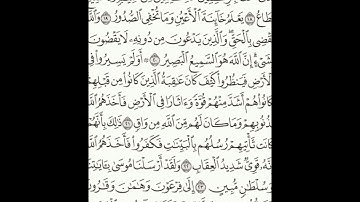 طَاعُ ۝١٨ يَعْلَمُ خَآئِنَةَ ٱلْأَعْيُنِ وَمَا تُخْفِى ٱلصُّدُورُ ۝١٩ وَٱللَّهُ
يَقْضِى بِٱلْحَقِّ ۖ وَٱلَّذِينَ يَدْعُونَ مِن دُونِهِۦ لَا يَقْضُونَ
بِشَىْءٍ ۗ إِنَّ ٱللَّهَ هُوَ ٱلسَّمِيعُ ٱلْبَصِيرُ ۝٢٠ أَوَلَمْ يَسِيرُوا۟ فِى
ٱلْأَرْضِ فَيَنظُرُوا۟ كَيْفَ كَانَ عَٰقِبَةُ ٱلَّذِينَ كَانُوا۟ مِن قَبْلِهِمْ
كَانُوا۟ هُمْ أَشَدَّ مِنْهُمْ قُوَّةً وَءَاثَارًا فِى ٱلْأَرْضِ فَأَخَذَهُمُ ٱللَّهُ
بِذُنُوبِهِمْ وَمَا كَانَ لَهُم مِّنَ ٱللَّهِ مِن وَاقٍ ۝٢١ ذَٰلِكَ بِأَنَّهُمْ
كَانَت تَّأْتِيهِمْ رُسُلُهُم بِٱلْبَيِّنَٰتِ فَكَفَرُوا۟ فَأَخَذَهُمُ ٱللَّهُ
إِنَّهُۥ قَوِىٌّ شَدِيدُ ٱلْعِقَابِ ۝٢٢ وَلَقَدْ أَرْسَلْنَا مُوسَىٰ بِـَٔايَٰتِنَا
وَسُلْطَٰنٍ مُّبِينٍ ۝٢٣ إِلَىٰ فِرْعَوْنَ وَهَٰمَٰنَ وَقَٰرُونَ